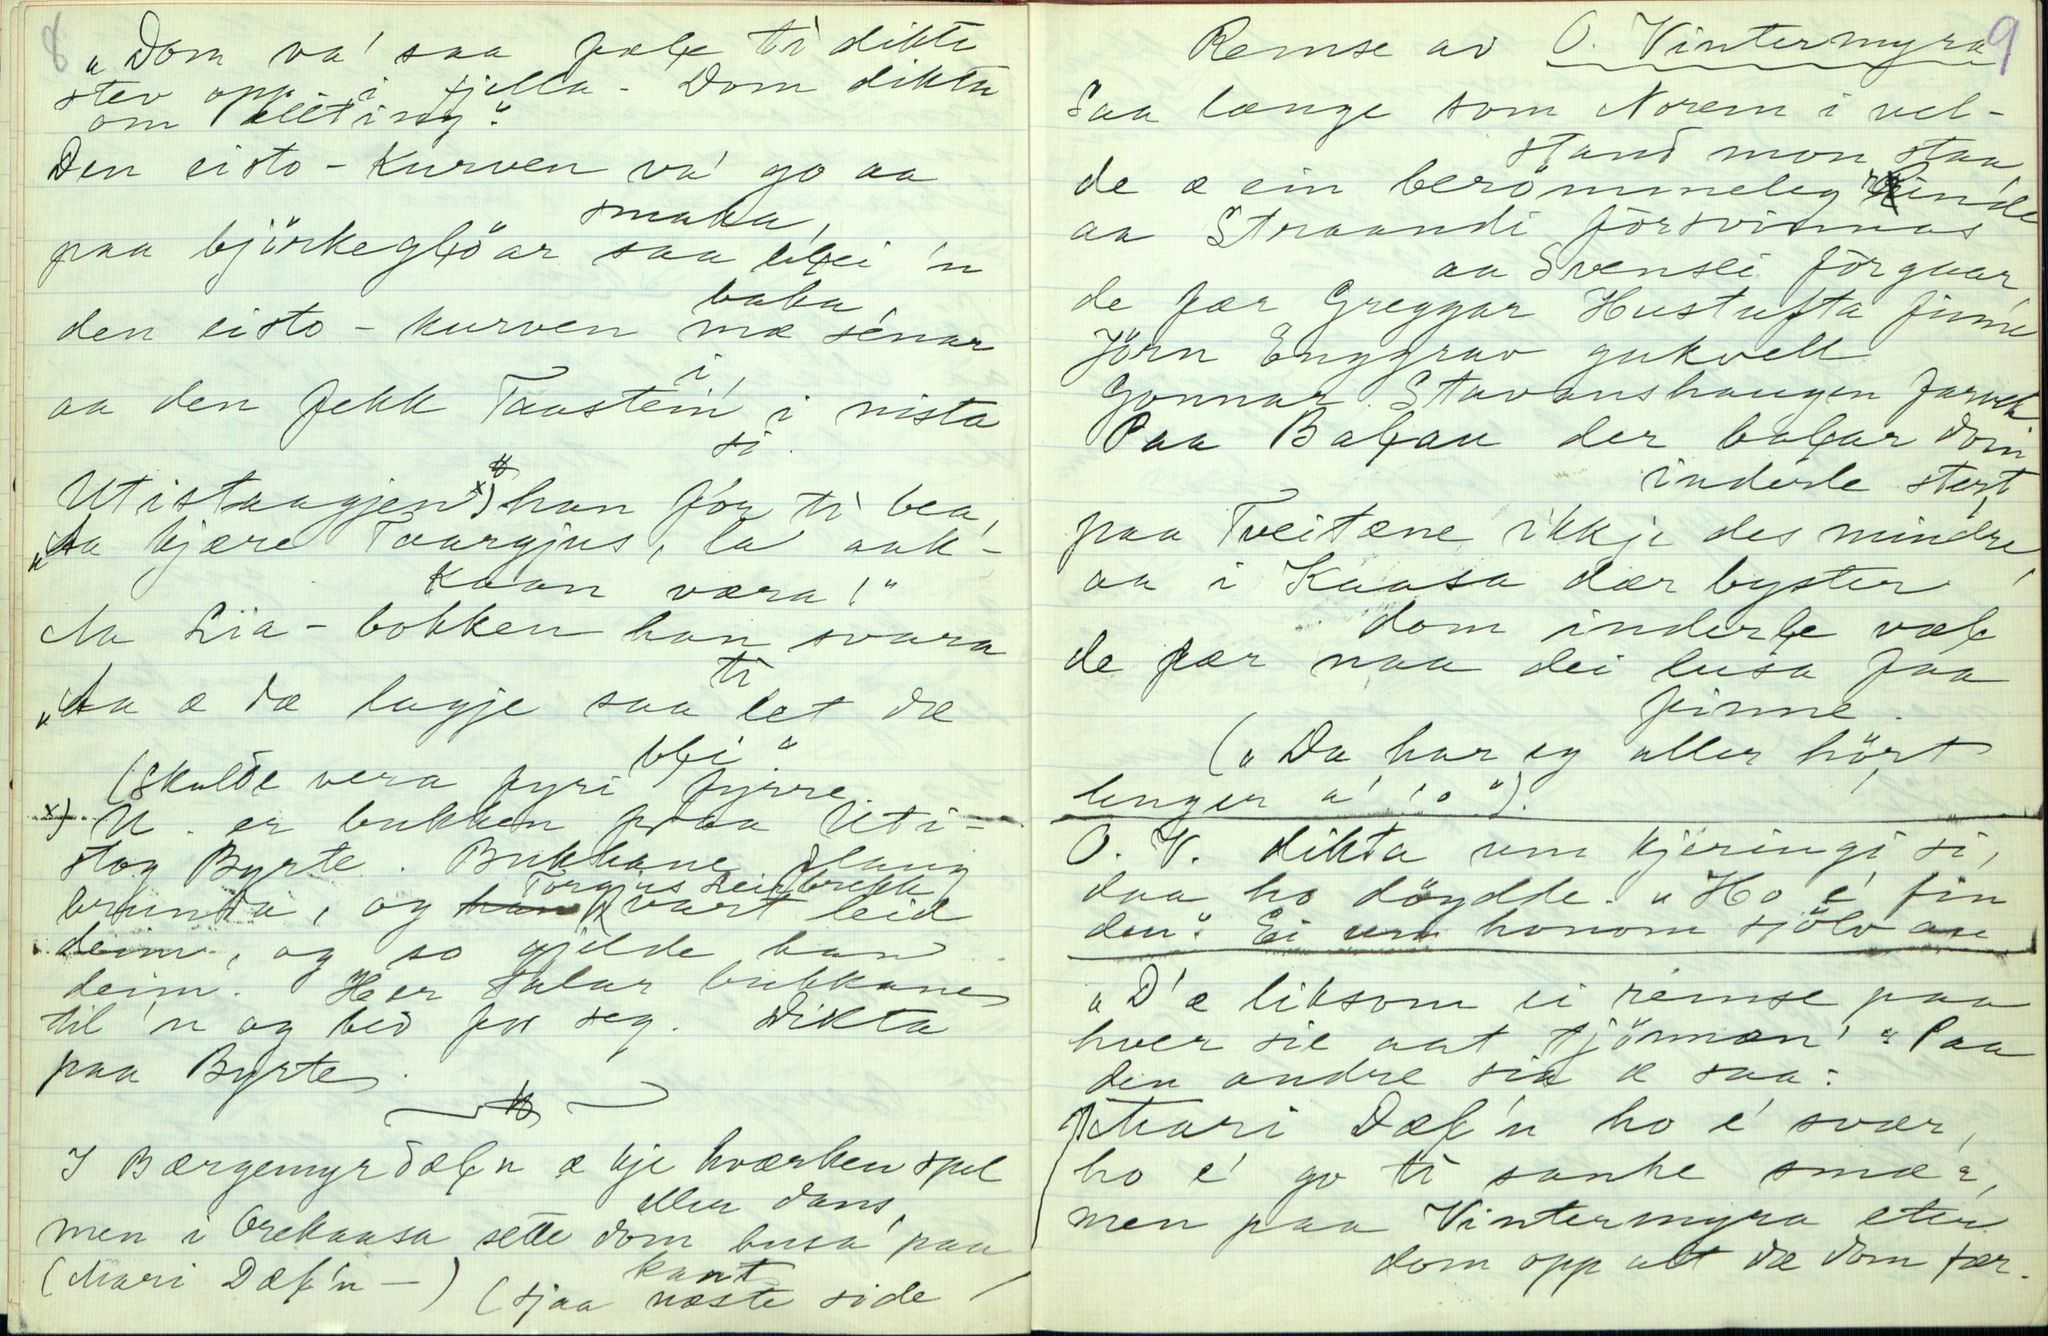 8
„Dom va' saa fælę ti dikte
stev opp i fjella - Dom dikta
om alleting".
Den eisto-kurven va' go aa
smaka,
paa björkeglöar saa blei 'n
baka,
den eisto-kurven mæ sénar
i,
aa den fekk Taastein' i nista
si.
Utistaagjen x) han fór ti bea,
„Aa kjære Taargjus, la aak-
kaan væra!"
Aa Lia-bokken han svara
ti
„Aa æ dæ lagje saa let dæ
bli"
(Skulde vera fyri fyrre.
x) U. er bukken paa Uti-
stog Byrte. Bukkane slaug
brunda, og Torgjus Leirbrekk vart leid
deim, og so gjelde han
deim. Her talar bukkane
til 'n og bed for seg. Dikta
paa Byrte.
I Bærgemyrdælęn æ kje hværken spel
eller dans,
men i Orekaasa sette dom busa' paa
kant
(Mari Dælę'n -) (sjaa næste side
9
Remse av O. Vintermyra
Saa længe som Norem i vel-
stand mon staa,
de æ ein berömmeleg rinde
aa Straandi forsvinnas
aa Svensei forgaar,
de fær Greggar Hustufta finne
Jörn Enggrav gukvell
Gonnar Stavanshaugen farvel
Paa Balęau der balęar dom
inderle stort,
paa Tveitæne ikkje des mindre,
aa i Kaasa dær byster
dom inderlę vælę
de fær naa dei lusa paa
pinne.
(„Da har eg aller hört
lenger a' 'o").
O. V. dikta um kjeringi si,
daa ho döydde. „Ho e' fin
den". Ei um honom sjölv au
„D'æ liksom ei remse paa
hver sie aat tjönnæn'" Paa
den andre sia æ saa:
Mari Dælę'n ho e' svær,
ho e' go ti sanke smæ'r,
men paa Vintermyra eter
dom opp alt dæ dom fær.